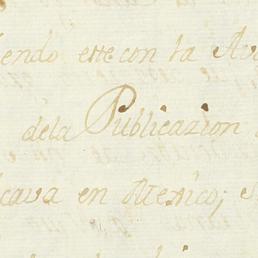 iendo este con la Au
dela Publicazion
cava en Mexico; S